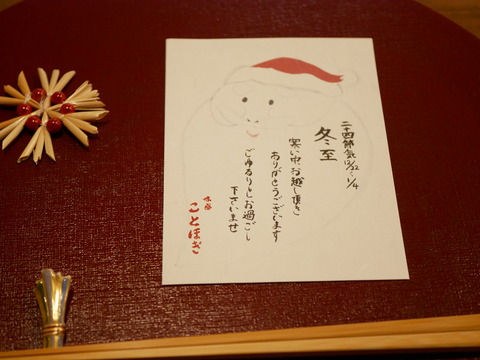 二十四節気12/22〜1/4
冬至
寒い中、お越し頂き
ありがとうございます
ごゆるりとお過ごし
下さいませ
ことほぎ